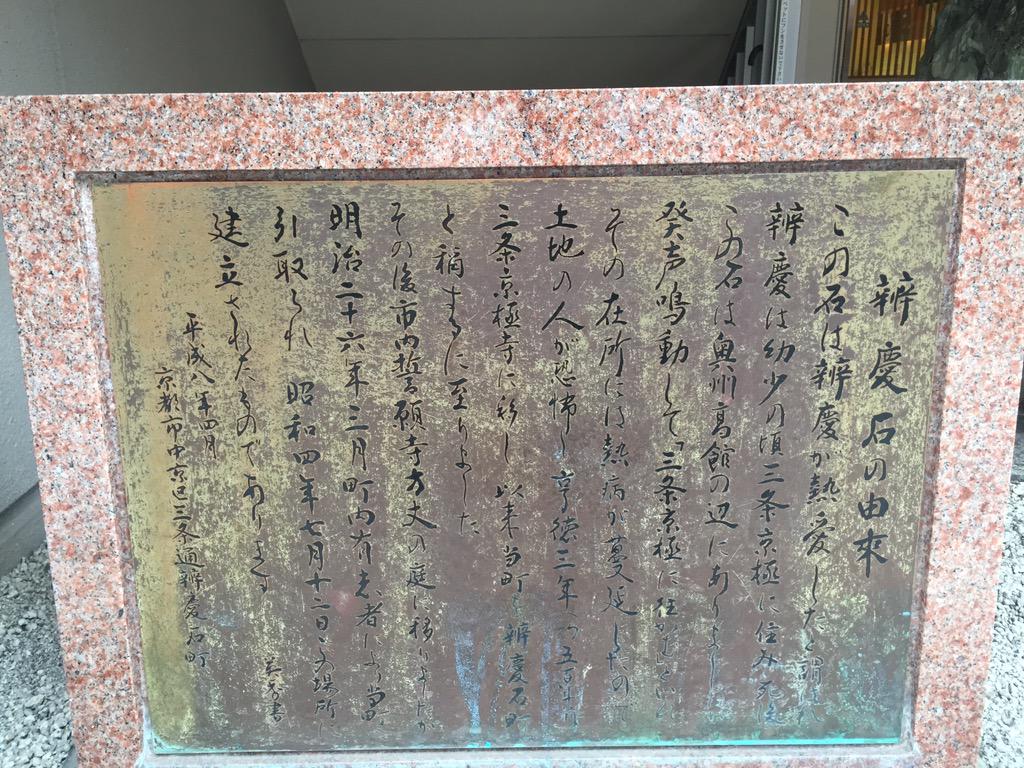 辨慶石の由来
この石は辨慶が熱愛したと謂はれ
辨慶は幼少の頃三条京極に住み死後
この石は奥州高館の辺にありまし
発声鳴動して「三条京極に往かむ」といい
その在所には熱病が蔓延したので
土地の人が恐怖し享徳三年
三条京極寺に移し以来当町を辨慶石町
と稱するに至りました
その後市内誓願寺方丈の庭に移りましたが
明治二十六年三月町内有志者により当町
引取られ 昭和四年七月十二日この場所
建立されたものであります
平成八年四月
京都市中京区三条通辨慶石町